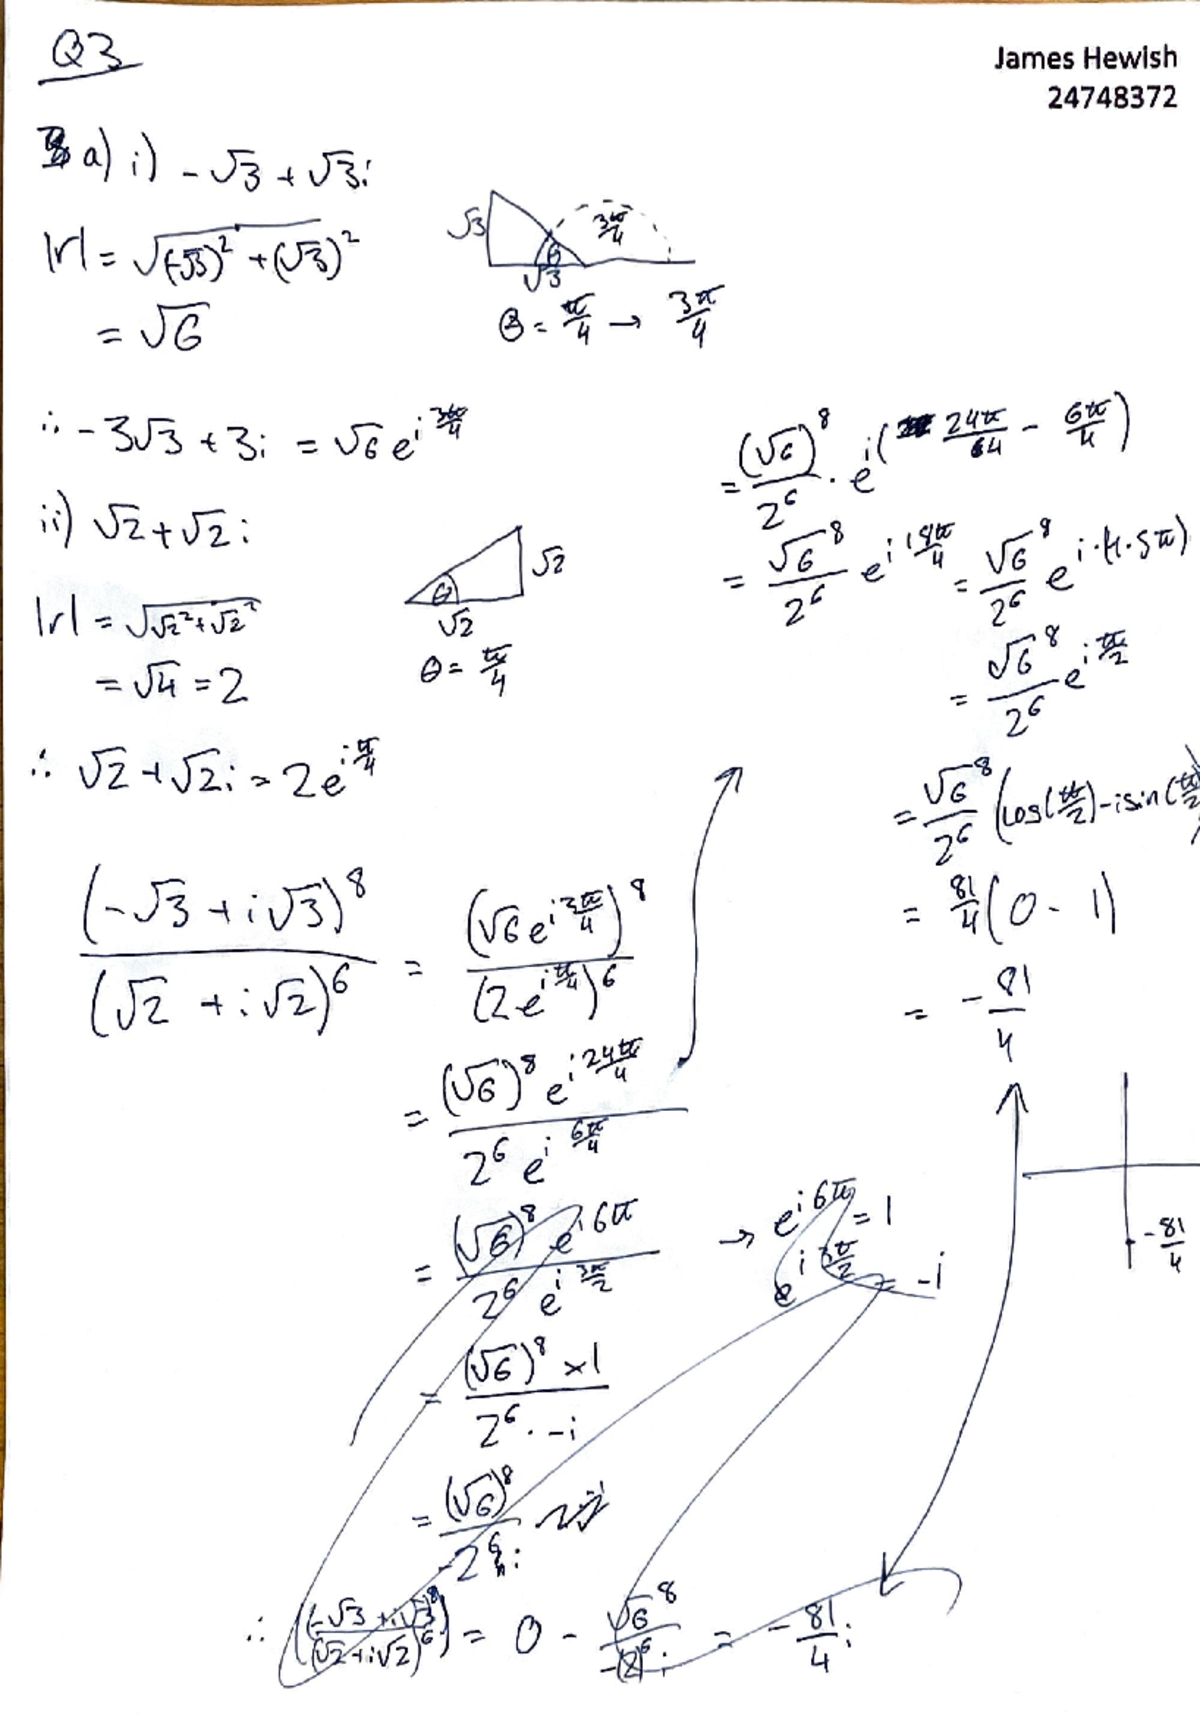 Q3
James Hewish
24748372
a) i) -√3 + √3i
|r| = √(-√3)² + (√3)²
= √6
√3
θ
3π/4
√3
θ = π/4 → 3π/4
∴ -3√3 + 3i = √6 e^(i 3π/4)
ii) √2 + √2 i
|r| = √(√2² + √2²)
= √4 = 2
θ
√2
√2
θ = π/4
∴ √2 + √2i = 2e^(i π/4)
(-√3 + i√3)^8 / (√2 + i√2)^6 = (√6 e^(i 3π/4))^8 / (2e^(i π/4))^6
= (√6)^8 e^(i 24π/4) / 2^6 e^(i 6π/4)
= (√6)^8 e^(i6π) / 2^6 e^(i 3π/2) → e^(i6π) = 1
e^(i 3π/2) = -i
= (√6)^8 × 1 / 2^6 · -i
= (√6)^8 / -2^6 i
∴ ((-√3 + i√3)^8 / (√2 + i√2)^6) = 0 - √6^8 / -(2)^6 i = -81/4 i
= (√6)^8 / 2^6 · e^(i(24π/4 - 6π/4))
= √6^8 / 2^6 e^(i 18π/4) = √6^8 / 2^6 e^(i·(4·5π))
= √6^8 / 2^6 e^(i π/2)
= √6^8 / 2^6 (cos(π/2) - isin(π/2))
= 81/4 (0 - 1)
= -81/4
-81/4